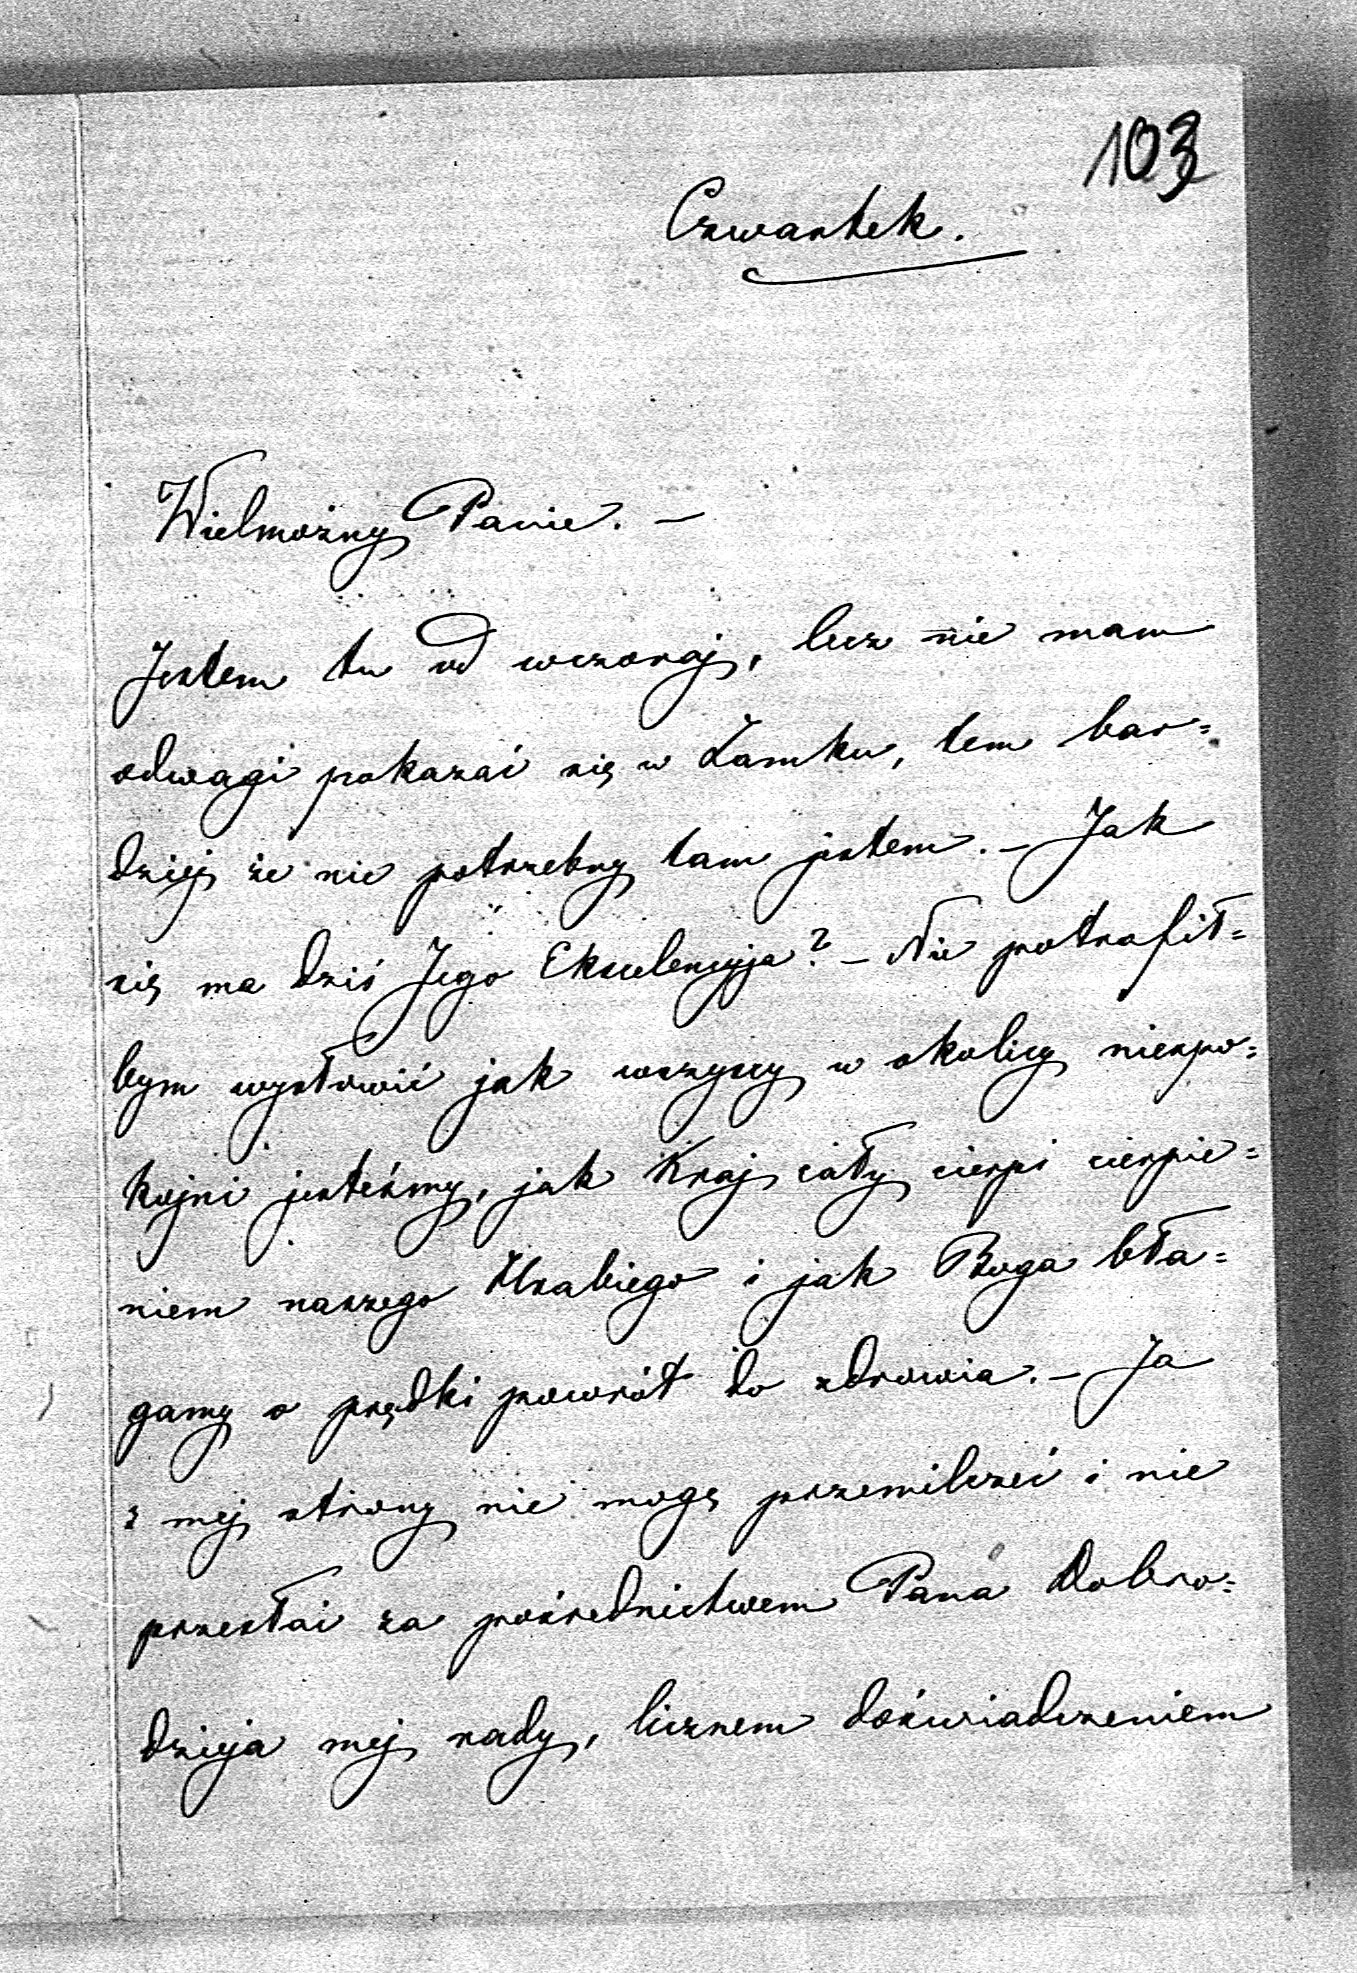 103
Czwartek.
Wielmożny Panie. —
Jestem tu od wczoraj, lecz nie mam
odwagi pokazać się w Zamku, tem bar=
dziej że nie potrzebny tam jestem. — Jak
się ma dziś Jego Ekscelencyja? — Nie potrafił=
bym wysłowić jak wszyscy w okolicy niespo=
kojni jesteśmy, jak Kraj cały cierpi cierpie=
niem naszego Hrabiego i jak Boga bła=
gamy o prędki powrót do zdrowia. — Ja
z mej strony nie mogę przemilczeć i nie
przesłać za pośrednictwem Pana Dobro=
dzieja mej rady, licznem doświadczeniem